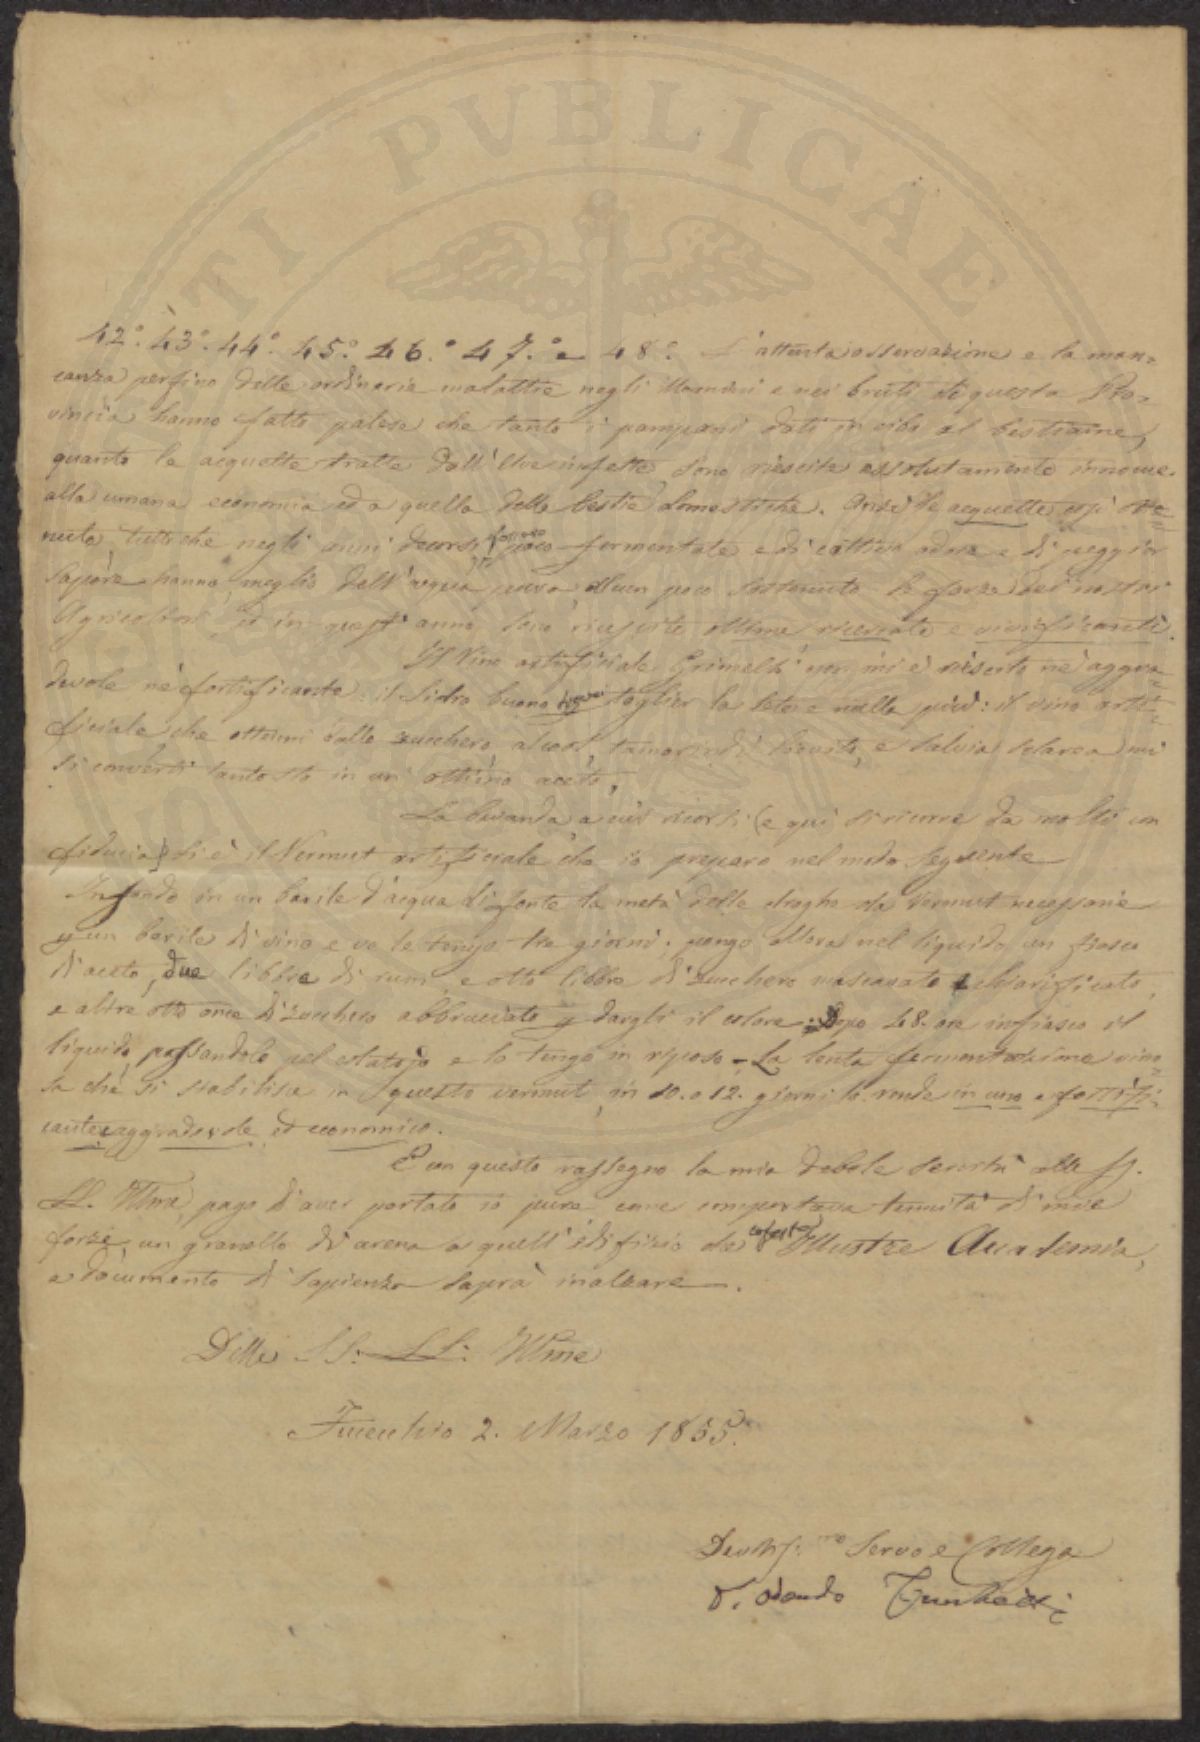 42.° 43.° 44.° 45.° 46.° 47.° e 48.° L'attenta osservazione e la man=
canza perfino delle ordinarie malattie negli Uomini e nei bruti di questa Pro=
vincia hanno fatto palese che tanto i pampani dati in cibo al bestiame,
quanto le acquette tratte dall'Uve infette, sono riescite assolutamente innocue
alla umana economia ed a quella delle bestie domestiche. Anzi le acquette così ote=
nute, tutto che negli anni decorsi fossero poco fermentate e di cattivo odore e di peggior
sapore hanno, meglio dell'acqua pura, alcun poco sostenuto le forze dei nostri
Agricoltori, ed in quest'anno sono riuscite ottime ricercate e vivificanti.
Il Vino artificiale Grimelli non mi è riescito nè aggra=
devole nè fortificante: il Sidro buono per toglier la sete e nulla più: il vino arti=
ficiale che ottenni dallo zucchero alcool, tamarindi, e salvia sclarea mi
si convertì tantosto in un ottimo aceto.
La bevanda a cui ricorsi (e qui si ricorre da molti con
fiducia) si è il Vermut artificiale che io preparo nel modo seguente
Infondo in un barile d'acqua di fonte la metà delle droghe da Vermut necessarie
p un barile di vino e ve le tengo tre giorni; pongo allora nel liquido un fiasco
di aceto, due libbre di rum, e otto libbre di zucchero mascavato chiarificato,
e altre otto once di zucchero abbruciato p dargli il colore: Dopo 48. ore infiasco il
liquido passandolo pel colatojo e lo tengo in riposo. La lenta fermentazione vino=
sa che si stabilisce in questo vermut, in 10. o 12. giorni lo rende in uno e fortifi=
cante e aggradevole ed economico.
E con questo rassegno la mia debole servitù alle SS.
LL. Illme, pago d'aver portato io pure come comportava tenuità di mie
forze, un granello di arena a quell'edifizio che cotesta Illustre Accademia,
a documento di sapienza saprà inalzare.
Delle SS: LL: Illme
Fucecchio 2. Marzo 1855.
Devotiss.mo Servo e Collega